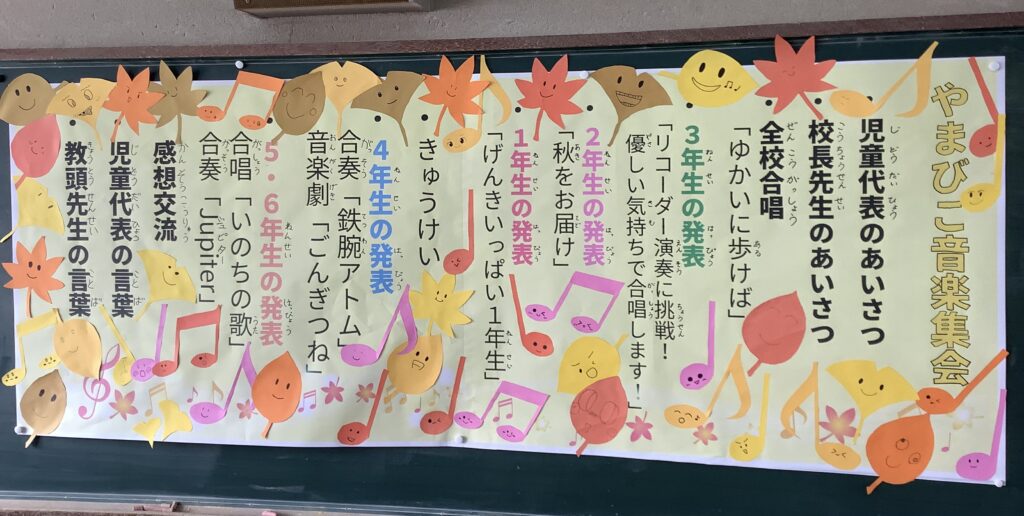 やまびこ音楽集会
・児童代表のあいさつ
・校長先生のあいさつ
・全校合唱
「ゆかいに歩けば」
・3年生の発表
「リコーダー演奏に挑戦!
優しい気持ちで合唱します!」
・2年生の発表
「秋をお届け」
・1年生の発表
「げんきいっぱい1年生」
・きゅうけい
・4年生の発表
合奏「鉄腕アトム」
音楽劇「ごんぎつね」
・5・6年生の発表
合唱「いのちの歌」
合奏「Jupiter」
・感想交流
・児童代表の言葉
・教頭先生の言葉